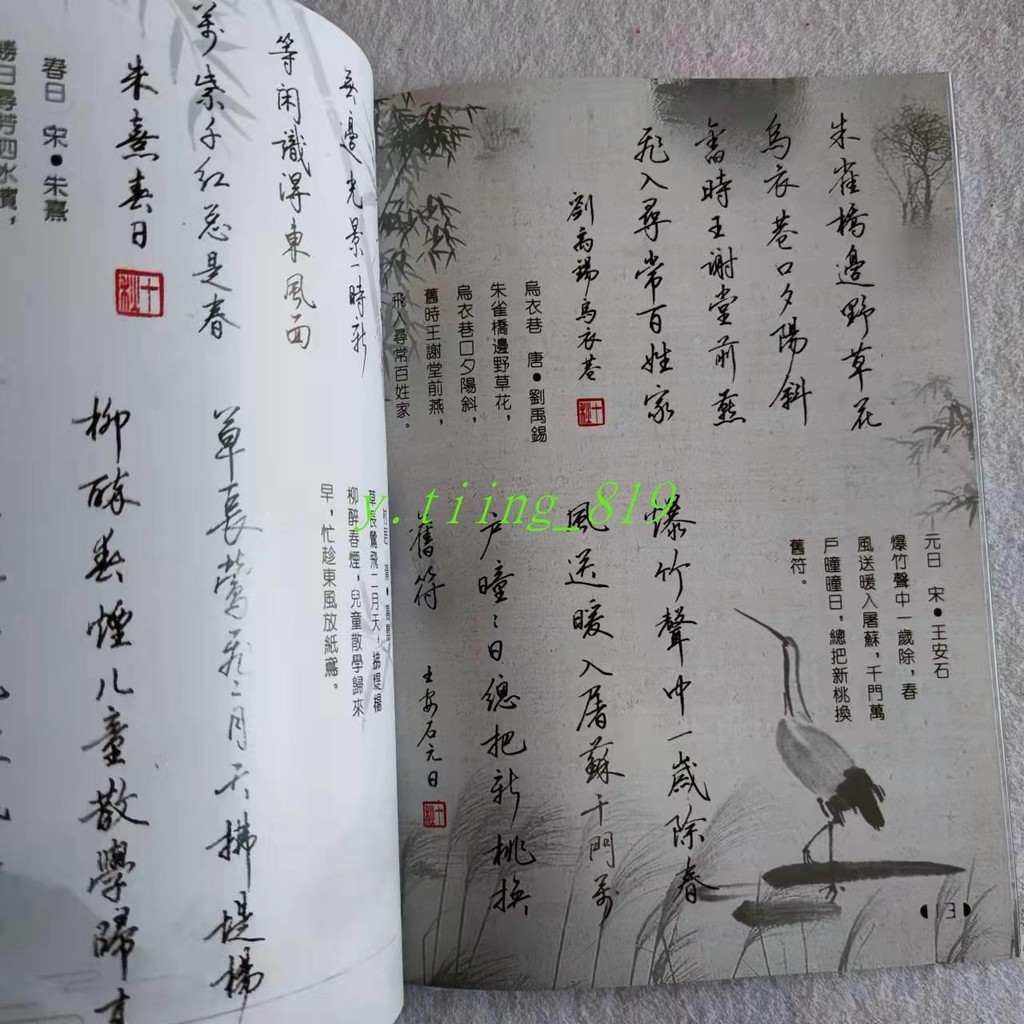 朱雀橋邊野草花
烏衣巷口夕陽斜
舊時王謝堂前燕
飛入尋常百姓家
劉禹錫烏衣巷
十秋
烏衣巷 唐•劉禹錫
朱雀橋邊野草花，
烏衣巷口夕陽斜，
舊時王謝堂前燕，
飛入尋常百姓家。
元日 宋•王安石
爆竹聲中一歲除，春
風送暖入屠蘇，千門萬
戶曈曈日，總把新桃換
舊符。
爆竹聲中一歲除春
風送暖入屠蘇千門萬
戶曈〻日總把新桃換
舊符
王安石元日
十秋
3
y.tiing_819
無邊光景一時新
等閑識得東風面
萬紫千紅总是春
朱熹春日
十秋
春日 宋•朱熹
勝日尋芳泗水濱，
草長鶯飛二月天，拂堤楊
柳醉春煙，兒童散學歸來
早，忙趁東風放紙鳶。
草長鶯飛二月天拂堤楊
柳醉春煙儿童散學歸來